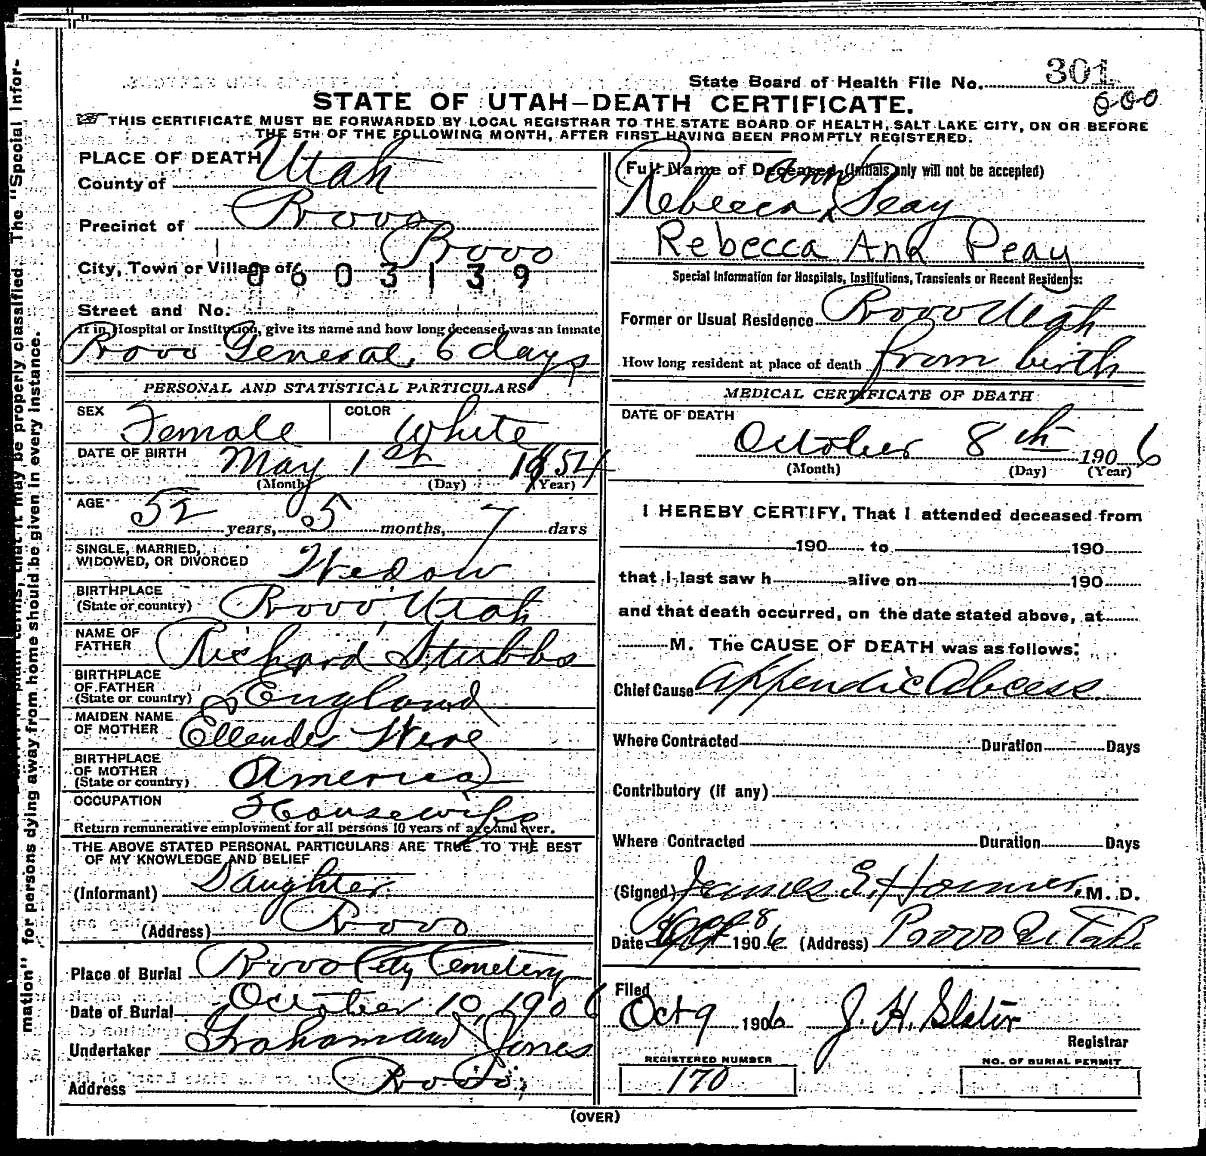 State Board of Health File No. 301
600
STATE OF UTAH—DEATH CERTIFICATE.
THIS CERTIFICATE MUST BE FORWARDED BY LOCAL REGISTRAR TO THE STATE BOARD OF HEALTH, SALT LAKE CITY, ON OR BEFORE
THE 5TH OF THE FOLLOWING MONTH, AFTER FIRST HAVING BEEN PROMPTLY REGISTERED.
PLACE OF DEATH
County of Utah
Precinct of Provo
City, Town or Village of Provo
0603139
Street and No.
If in Hospital or Institution, give its name and how long deceased was an inmate
Provo General, 6 days
PERSONAL AND STATISTICAL PARTICULARS
SEX Female COLOR White
DATE OF BIRTH May 1st 1854
(Month) (Day) (Year)
AGE 52 years, 5 months, 7 days
SINGLE, MARRIED,
WIDOWED, OR DIVORCED Wedow
BIRTHPLACE
(State or country) Provo Utah
NAME OF
FATHER Richard Stubbs
BIRTHPLACE
OF FATHER
(State or country) England
MAIDEN NAME
OF MOTHER Ellender
BIRTHPLACE
OF MOTHER
(State or country) America
OCCUPATION Housewife
Return remunerative employment for all persons 10 years of age and over.
THE ABOVE STATED PERSONAL PARTICULARS ARE TRUE TO THE BEST
OF MY KNOWLEDGE AND BELIEF
(Informant) Daughter
(Address) Provo
Place of Burial Provo City Cemetery
Date of Burial October 10, 1906
Undertaker Graham and Jones
Address Provo,
Full Name of Deceased (Initials only will not be accepted)
Rebecca Ann Peay
Rebecca Ann Peay
Special Information for Hospitals, Institutions, Transients or Recent Residents:
Former or Usual Residence Provo Utah
How long resident at place of death from birth
MEDICAL CERTIFICATE OF DEATH
DATE OF DEATH
October 8th 1906
(Month) (Day) (Year)
I HEREBY CERTIFY, That I attended deceased from
190 to 190
that I last saw h alive on 190
and that death occurred, on the date stated above, at
M. The CAUSE OF DEATH was as follows:
Chief Cause Appendic Abcess
Where Contracted Duration Days
Contributory (if any)
Where Contracted Duration Days
(Signed) James E. M. D.
Date 8 1906 (Address) Provo Utah
Filed
Oct 9 1906 J. H. Slater
Registrar
REGISTERED NUMBER
170
NO. OF BURIAL PERMIT
(OVER)
mation" for persons dying away from home should be given in every instance.
terms, that it may be properly classified. The "Special Infor-